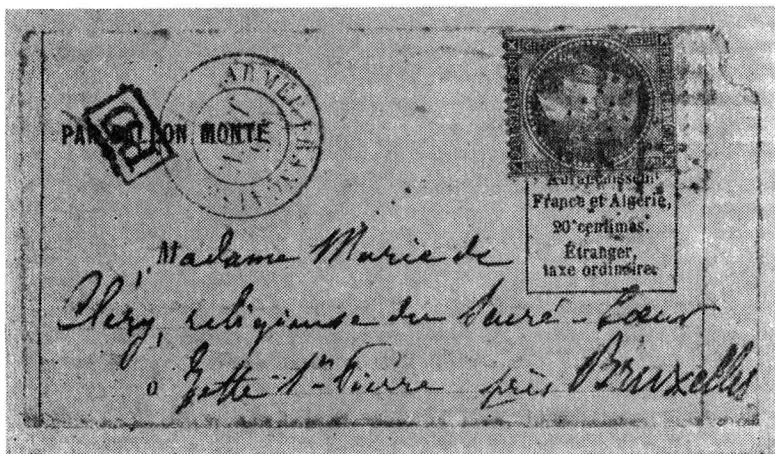 PAR BALLON MONTÉ
PD
ARMÉE FRANÇAISE
Affranchissement
France et Algérie,
20 centimes.
Étranger,
taxe ordinaire.
Madame Marie de
Cléry, religieuse du Sacré-Cœur
à Jette St Pierre près Bruxelles